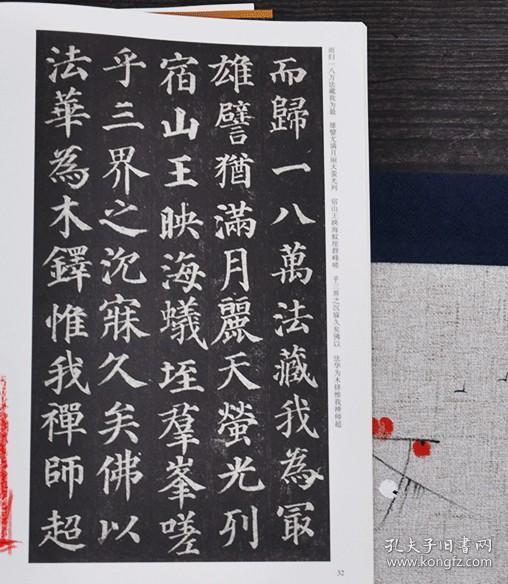 而歸一八萬法藏我為冣
雄譬猶滿月麗天螢光列
宿山王映海蟻垤羣峯嗟
乎三界之沉寐久矣佛以
法華為木鐸惟我禪師超
而归一八万法藏我为最 雄譬尤满月丽天萤光列 宿山王映海蚁垤群峰嗟 乎三界之沉寐久矣佛以 法华为木铎惟我禅师超
32
孔夫子旧书网
www.kongfz.com